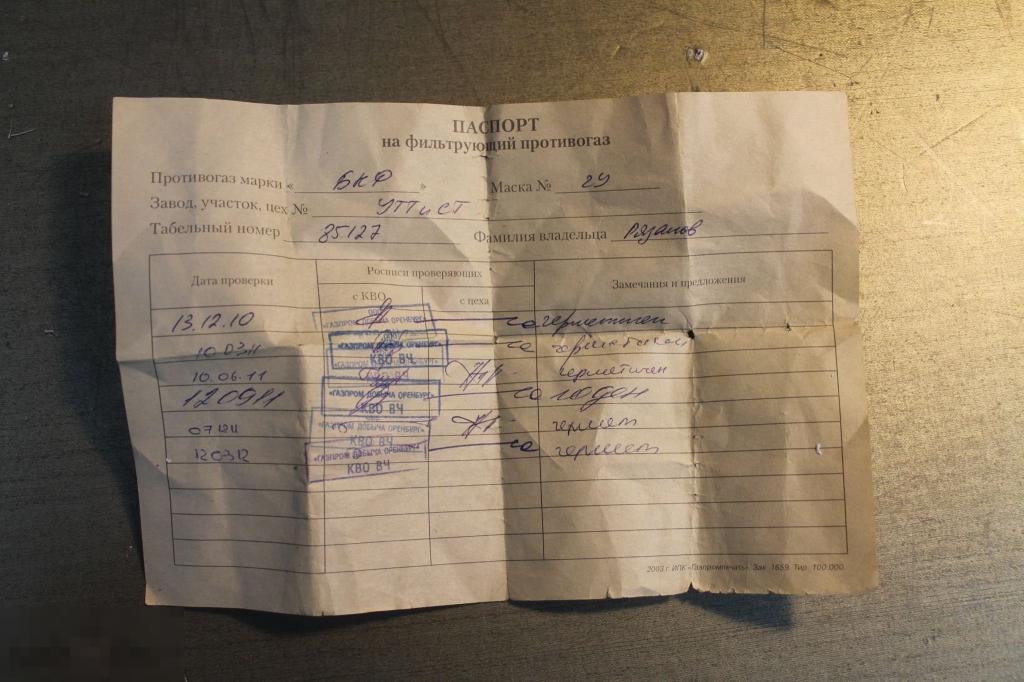 ПАСПОРТ
на фильтрующий противогаз
Противогаз марки « БКФ » Маска № 2у
Завод, участок, цех № УТТиСТ
Табельный номер 85127 Фамилия владельца Рязанов
Дата проверки Росписи проверяющих Замечания и предложения
с КВО с цеха
13.12.10 «ГАЗПРОМ ДОБЫЧА ОРЕНБУРГ» герметичен
10 03 11 «ГАЗПРОМ ДОБЫЧА ОРЕНБУРГ» КВО ВЧ
10.06.11 герметичен
12 09 11 «ГАЗПРОМ ДОБЫЧА ОРЕНБУРГ» КВО ВЧ годен
07 12 11 ДОБЫЧА ОРЕНБУРГ» КВО ВЧ гермет
12 03 12 «ГАЗПРОМ ДОБЫЧА ОРЕНБУРГ» КВО ВЧ гермет
2003 г. ИПК «Газпромпечать». Зак. 1659. Тир. 100.000